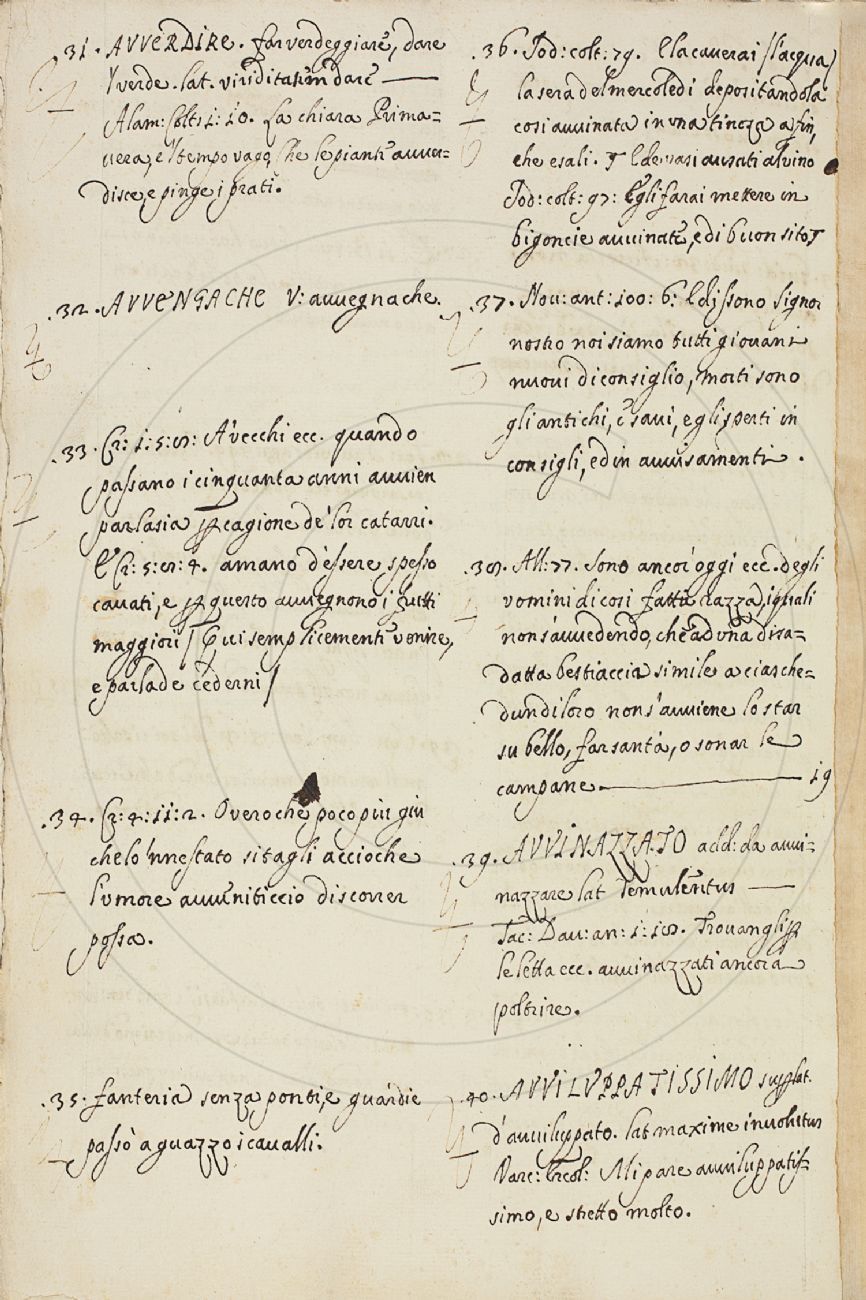 .31. AVVERDIRE. far verdeggiare, dare
'l verde. lat. viriditatem dare
Alam: Colt: 1: 10. La chiara Prima=
vera, e 'l tempo vago, Che le piante avver=
disce, e pinge i prati.
.32. AVVENGACHE V: avvegnache.
.33. Cr: 1: 5: 8: A' vecchi ecc. quando
passano i cinquanta anni avvien
parlasia per cagione de' lor catarri.
E Cr: 5: 8: 4. amano d'essere spesso
cavati, e per questo avvegnono i frutti
maggiori / Qui semplicemente venire,
e parla de' cederni /
.34. Cr: 4: 11: 2. Overo che poco piu giu
che lo 'nnestato si tagli accioche
l'umore avveniticcio discorrer
possa.
.35. fanteria senza ponti, e guardie
passò a guazzo i cavalli.
.36. Sod: colt: 79. E la caverai / l'acqua /
la sera del mercoledi depositandola
cosi avvinata in una tinozza a fin,
che esali. E de vasi avsati al vino
Sod: colt: 97: E gli farai mettere in
bigoncie avvinate, e di buon sito
.37. Nov: ant: 100: 6: E dissono signor
nostro noi siamo tutti giovani
nuovi di consiglio, morti sono
gli antichi, e savi, e gli sperti in
consigli, ed in avvisamenti.
.38. All: 77. Sono ancor oggi ecc. degli
vomini di cosi fatta razza, i quali
non s'avvedendo, che ad vna disa=
datta bestiaccia simile a ciasche=
dun di loro non s'avviene lo star
su bello, far santà, o sonar le
campane 19
.39. AVVINAZZATO add: da avvi=
nazzare lat. Temulentus
Tac: Dav: an: 1: 18. Trovangli per
le letta ecc. avvinazzati ancora
poltrire.
.40. AVVILVPPATISSIMO superlat.
d'avviluppato. lat maxime involutus
Varc: Ercol: Mi pare avviluppatis=
simo, e stretto molto.